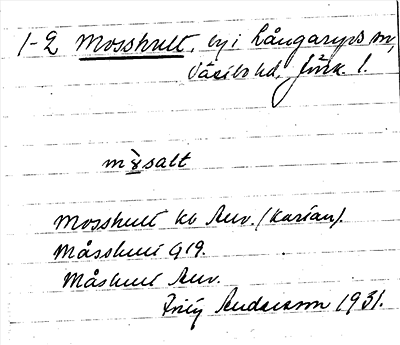 1-2 Mosshult, by i Långaryds sn,
Västbo hd, Jönk. l.
mɤ̀salt
Mosshult kb Anv. (kartan).
Måsshult G19.
Måshult Anv.
Fritz Andersson 1931.